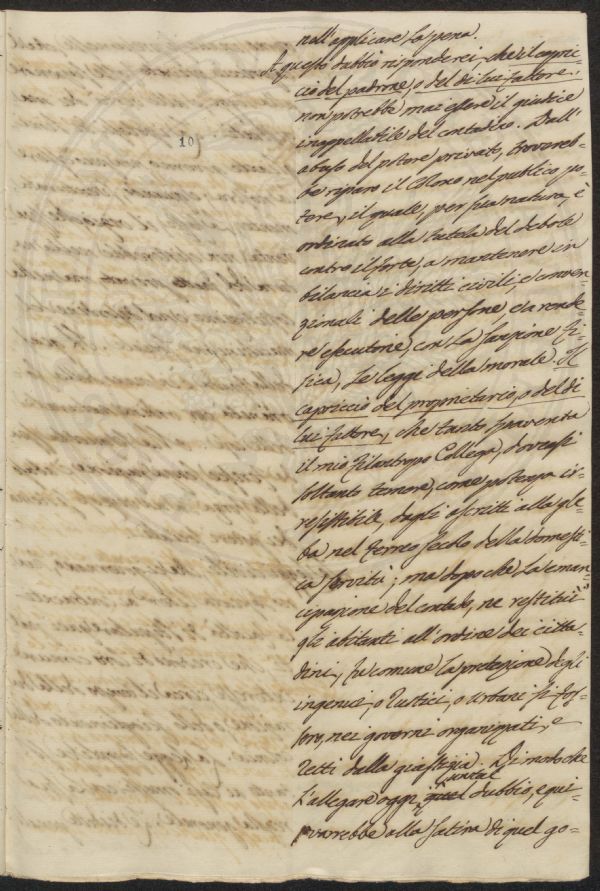 10
nell'applicare la pena.
A questo dubbio risponderei, che il capric-
cio del padrone, o del di lui fattore,
non potrebbe mai essere il giudice
inappellabile del contadino. Dall'
abuso del potere privato, trovereb-
be riparo il Colono nel publico po-
tere, il quale, per sua natura, è
ordinato alla tutela del debole
contro il forte, a mantenere in
bilancia i diritti civili, e conven
zionali delle persone e a rende
re esecutorie, con la sanzione fi-
sica, le leggi della morale. Il
capriccio del proprietario, o del di
lui fattore, che tanto spaventa
il mio filantropo Collega, dovea si
soltanto temere, come potenza ir-
resistibile, dagli ascritti alla gle-
ba nel ferreo secolo della domesti-
ca servitù; ma dopo che, la eman-
cipazione del contado, ne restituì
gli abitanti all'ordine dei citta-
dini, fu comune la protezione degli
ingenui, o rustici, o urbani si fos-
sero, nei governi organizzati, e
retti dalla giustizia. Di modo che
l'allegare oggi, quel dubbio, equi-
varrebbe alla satira di quel go-